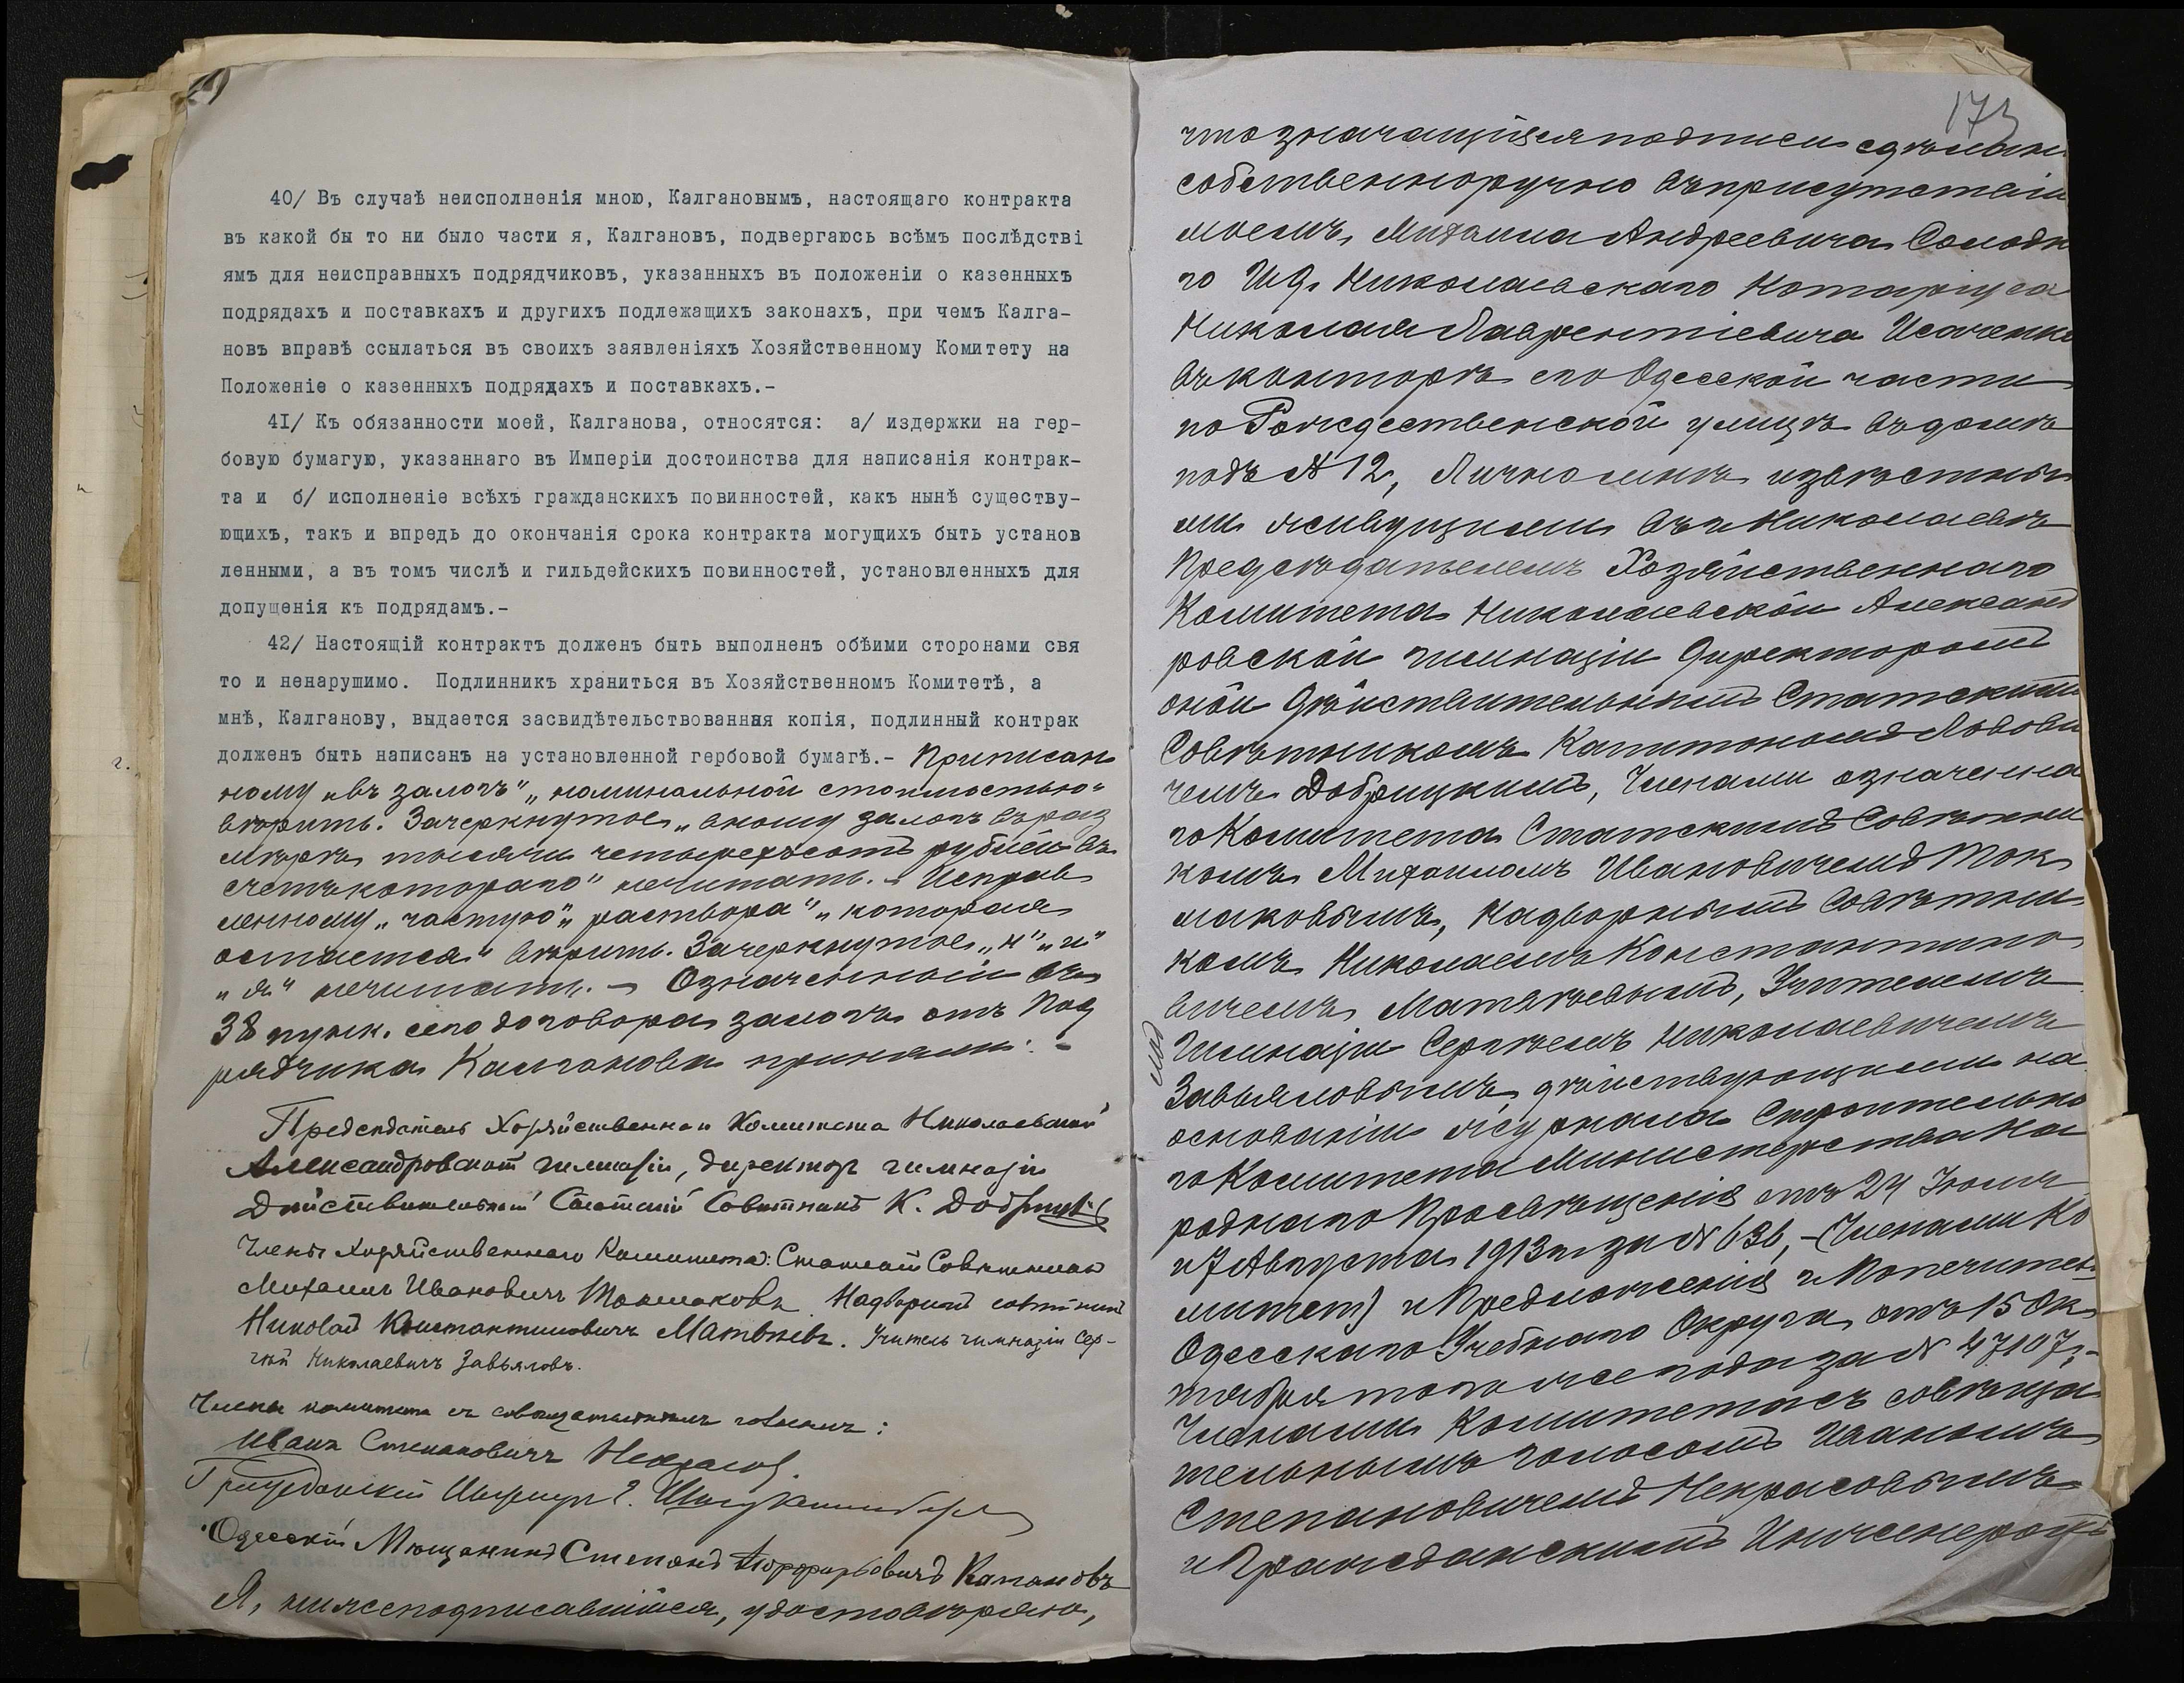 40/ Въ случаѣ неисполненія мною, Калгановымъ, настоящаго контракта
въ какой бы то ни было части я, Калгановъ, подвергаюсь всѣмъ послѣдстві
ямъ для неисправныхъ подрядчиковъ, указанныхъ въ положеніи о казенныхъ
подрядахъ и поставкахъ и другихъ подлежащихъ законахъ, при чемъ Калга-
новъ вправѣ ссылаться въ своихъ заявленіяхъ Хозяйственному Комитету на
Положеніе о казенныхъ подрядахъ и поставкахъ.-
41/ Къ обязанности моей, Калганова, относятся: а/ издержки на гер-
бовую бумагую, указаннаго въ Имперіи достоинства для написанія контрак-
та и б/ исполненіе всѣхъ гражданскихъ повинностей, какъ нынѣ существу-
ющихъ, такъ и впредь до окончанія срока контракта могущихъ быть установ
ленными, а въ томъ числѣ и гильдейскихъ повинностей, установленныхъ для
допущенія къ подрядамъ.-
42/ Настоящій контрактъ долженъ быть выполненъ обѣими сторонами свя
то и ненарушимо. Подлинникъ храниться въ Хозяйственномъ Комитетѣ, а
мнѣ, Калганову, выдается засвидѣтельствованная копія, подлинный контрак
долженъ быть написанъ на установленной гербовой бумагѣ.- Приписан
ному „въ залогъ" „номинальной стоимостью"
вѣрить. Зачеркнутое „ залогъ въ раз
мѣрѣ тысячи четырехсотъ рублей въ
счетъ котораго" не читать. - Исправ
ленному „частую" „раствора" „которая
остается" вѣрить. Зачеркнутое „н" „и"
„я" не читать. - Означенный въ
38 пунк. сего договора залогъ отъ Под
рядчика Калганова приняли: -
Предсѣдатель Хозяйственнаго Комитета Николаевской
Александровской гимназіи, директоръ гимназіи
Дѣйствительный Статскій Совѣтникъ К. Добрицкій
Члены Хозяйственнаго Комитета: Статскій Совѣтникъ
Михаилъ Ивановичъ Токмаковъ. Надворный совѣтникъ
Николай Константиновичъ Матвѣевъ. Учитель гимназіи Сер-
гѣй Николаевичъ Завьяловъ.
Члены комитета съ совѣщательнымъ голосомъ:
Иванъ Степановичъ Некрасовъ.
Гражданскій Инженеръ
Одесскій Мѣщанинъ Степанъ Порфирьевичъ Калгановъ
Я, нижеподписавшійся, удостовѣряю,
173
что значащіяся подписи сдѣлан
собственноручно въ присутствіи
моемъ, Михаила Андреевича Солодк
го И.д. Николаевскаго Нотаріуса
Николая Лаврентіевича Исаченко
въ конторѣ его Одесской части
по Рождественской улицѣ въ домѣ
подъ № 12, Лично мнѣ извѣстны
ми живущими въ г. Николаевѣ
Предсѣдателемъ Хозяйственнаго
Комитета Николаевской Александ
ровской гимназіи Директоромъ
оной Дѣйствительнымъ Статскимъ
Совѣтникомъ Капитономъ Львови
чемъ Добрицкимъ, Членами означенна
го Комитета Статскимъ Совѣтни
комъ Михаиломъ Ивановичемъ Ток
маковымъ, Надворнымъ Совѣтни
комъ Николаемъ Константино
вичемъ Матвѣевымъ, Учителемъ
Гимназіи Сергѣемъ Николаевичемъ
Завьяловымъ, дѣйствующими на
основаніи журнала Строительна
го Комитета Министерства На
роднаго Просвѣщенія отъ 24 Іюля
и 7 Августа 1913 г. за № 636, - (Членами Ко
митет) и Предложенія г. Попечителя
Одесскаго Учебнаго Округа отъ 15 Ок
тября того же года за № 47107, -
Членами Комитета съ совѣща
тельнымъ голосомъ Иваномъ
Степановичемъ Некрасовымъ
и Гражданскимъ Инженеромъ